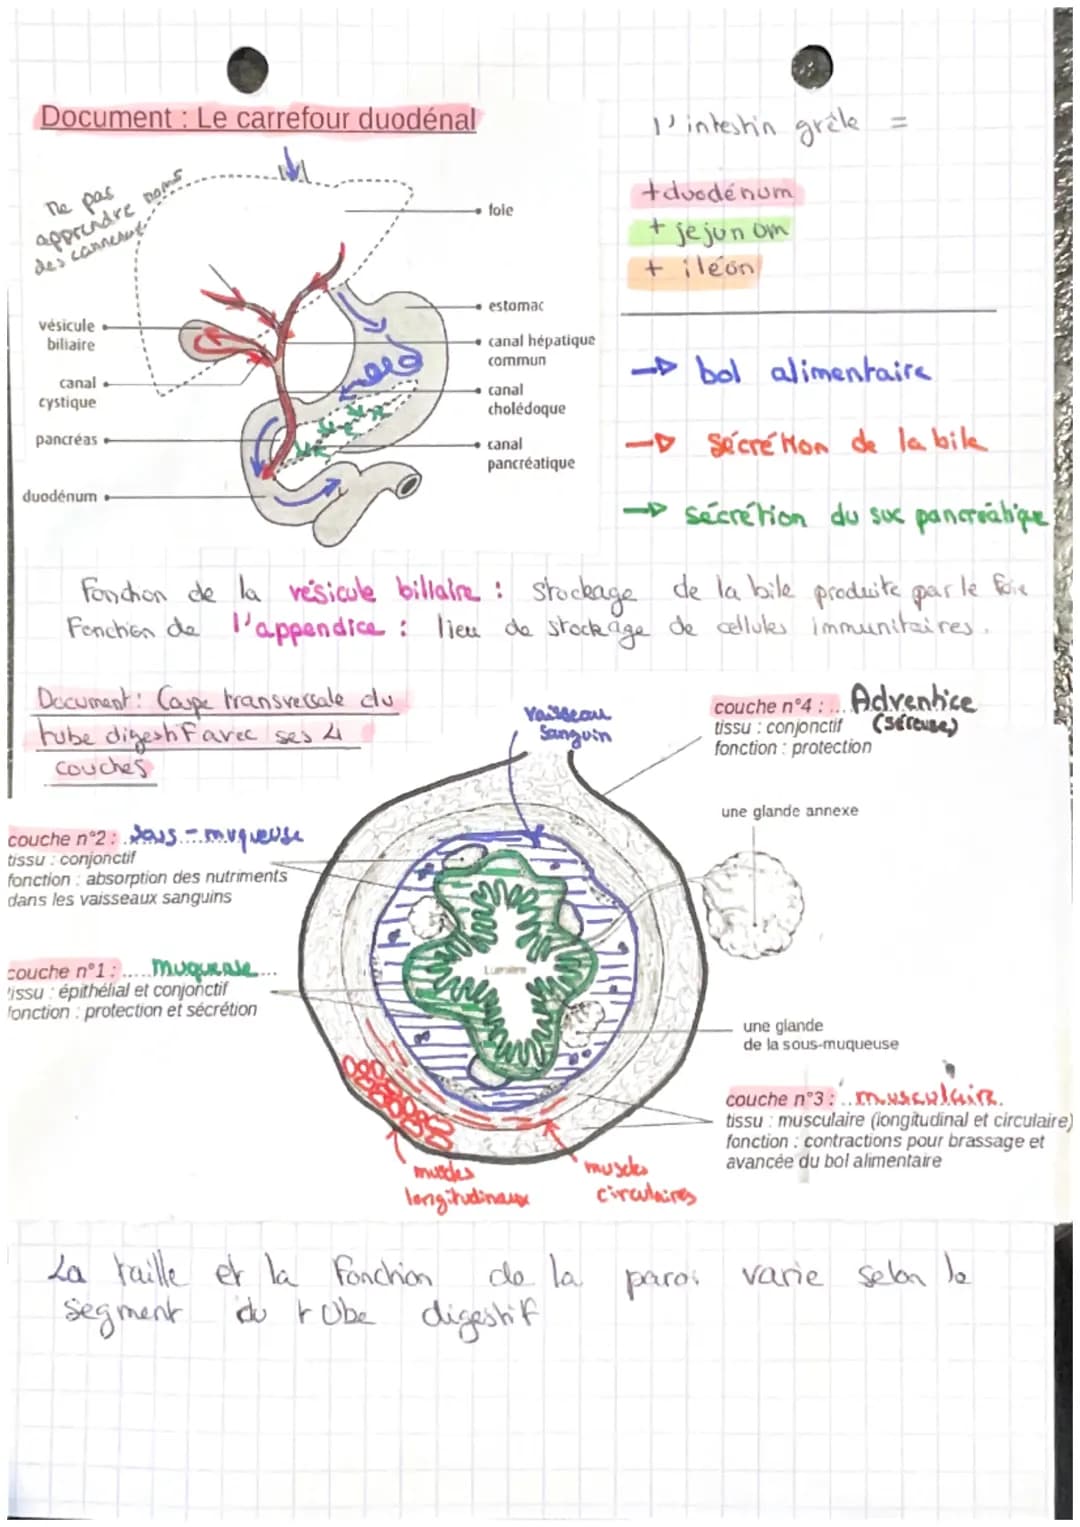 Document : Le carrefour duodénal
ne pas
apprendre noms
des canneaux
foie
estomac
canal hépatique
commun
canal
cholédoque
canal
pancréatique
vésicule
biliaire
canal
cystique
pancréas
duodénum
l'intestin grêle =
+ duodénum
+ jejunom
+ iléon
→ bol alimentaire
→ sécrétion de la bile
→ sécrétion du suc pancréatique
Fonction de la vésicule billaire : stockage de la bile produite par le foie
Fonction de l'appendice : lieu de stockage de cellules immunitaires.
Document : Coupe transversale du
tube digestif avec ses 4
couches
vaisseau
sanguin
couche n°4 : ... Adventice
tissu : conjonctif (séreuse)
fonction : protection
une glande annexe
couche n°2 : sous-muqueuse
tissu : conjonctif
fonction : absorption des nutriments
dans les vaisseaux sanguins
couche n°1 : ..... muqueuse ...
tissu : épithélial et conjonctif
fonction : protection et sécrétion
Lumière
une glande
de la sous-muqueuse
couche n°3 : .. musculaire.
tissu : musculaire (longitudinal et circulaire)
fonction : contractions pour brassage et
avancée du bol alimentaire
muscles
longitudinaux
muscles
circulaires
La taille et la fonction de la paroi varie selon le
segment du tube digestif